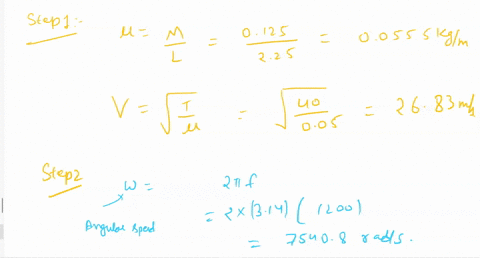 Step1:-
μ = M/L = 0.125/2.25 = 0.0555 kg/m
V = √(T/μ) = √(40/0.05) = 26.83 m/s
Step2
ω = 2πf
Angular speed
= 2×(3.14) (1200)
= 7540.8 rad/s.